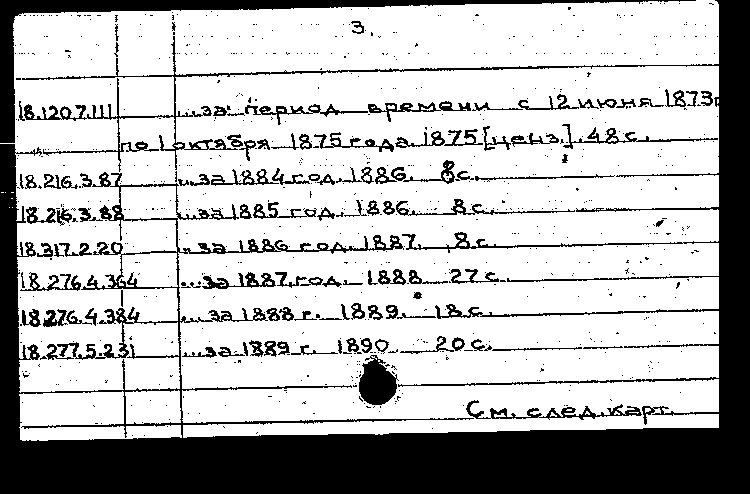 3.
18.120.7.111 ...за период времени с 12 июня 1873г
по 1 октября 1875 года. 1875 [ценз.]. 48 с.
18.216.3.87 ...за 1884 год. 1886. 8 с.
18.216.3.88 ...за 1885 год. 1886. 8 с.
18.317.2.20 ...за 1886 год. 1887. 8 с.
18.276.4.364 ...за 1887 год. 1888 27 с.
18.276.4.384 ...за 1888 г. 1889. 18 с.
18.277.5.231 ...за 1889 г. 1890 20 с.
См. след. карт.